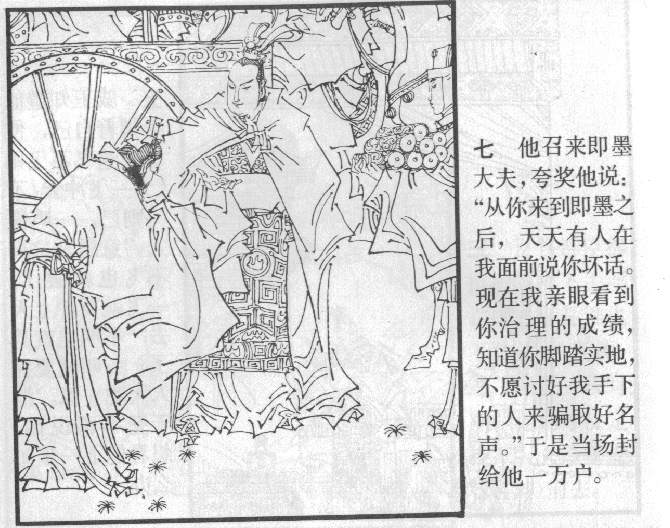 七　他召来即墨
大夫，夸奖他说：
“从你来到即墨之
后，天天有人在
我面前说你坏话。
现在我亲眼看到
你治理的成绩，
知道你脚踏实地，
不愿讨好我手下
的人来骗取好名
声。”于是当场封
给他一万户。